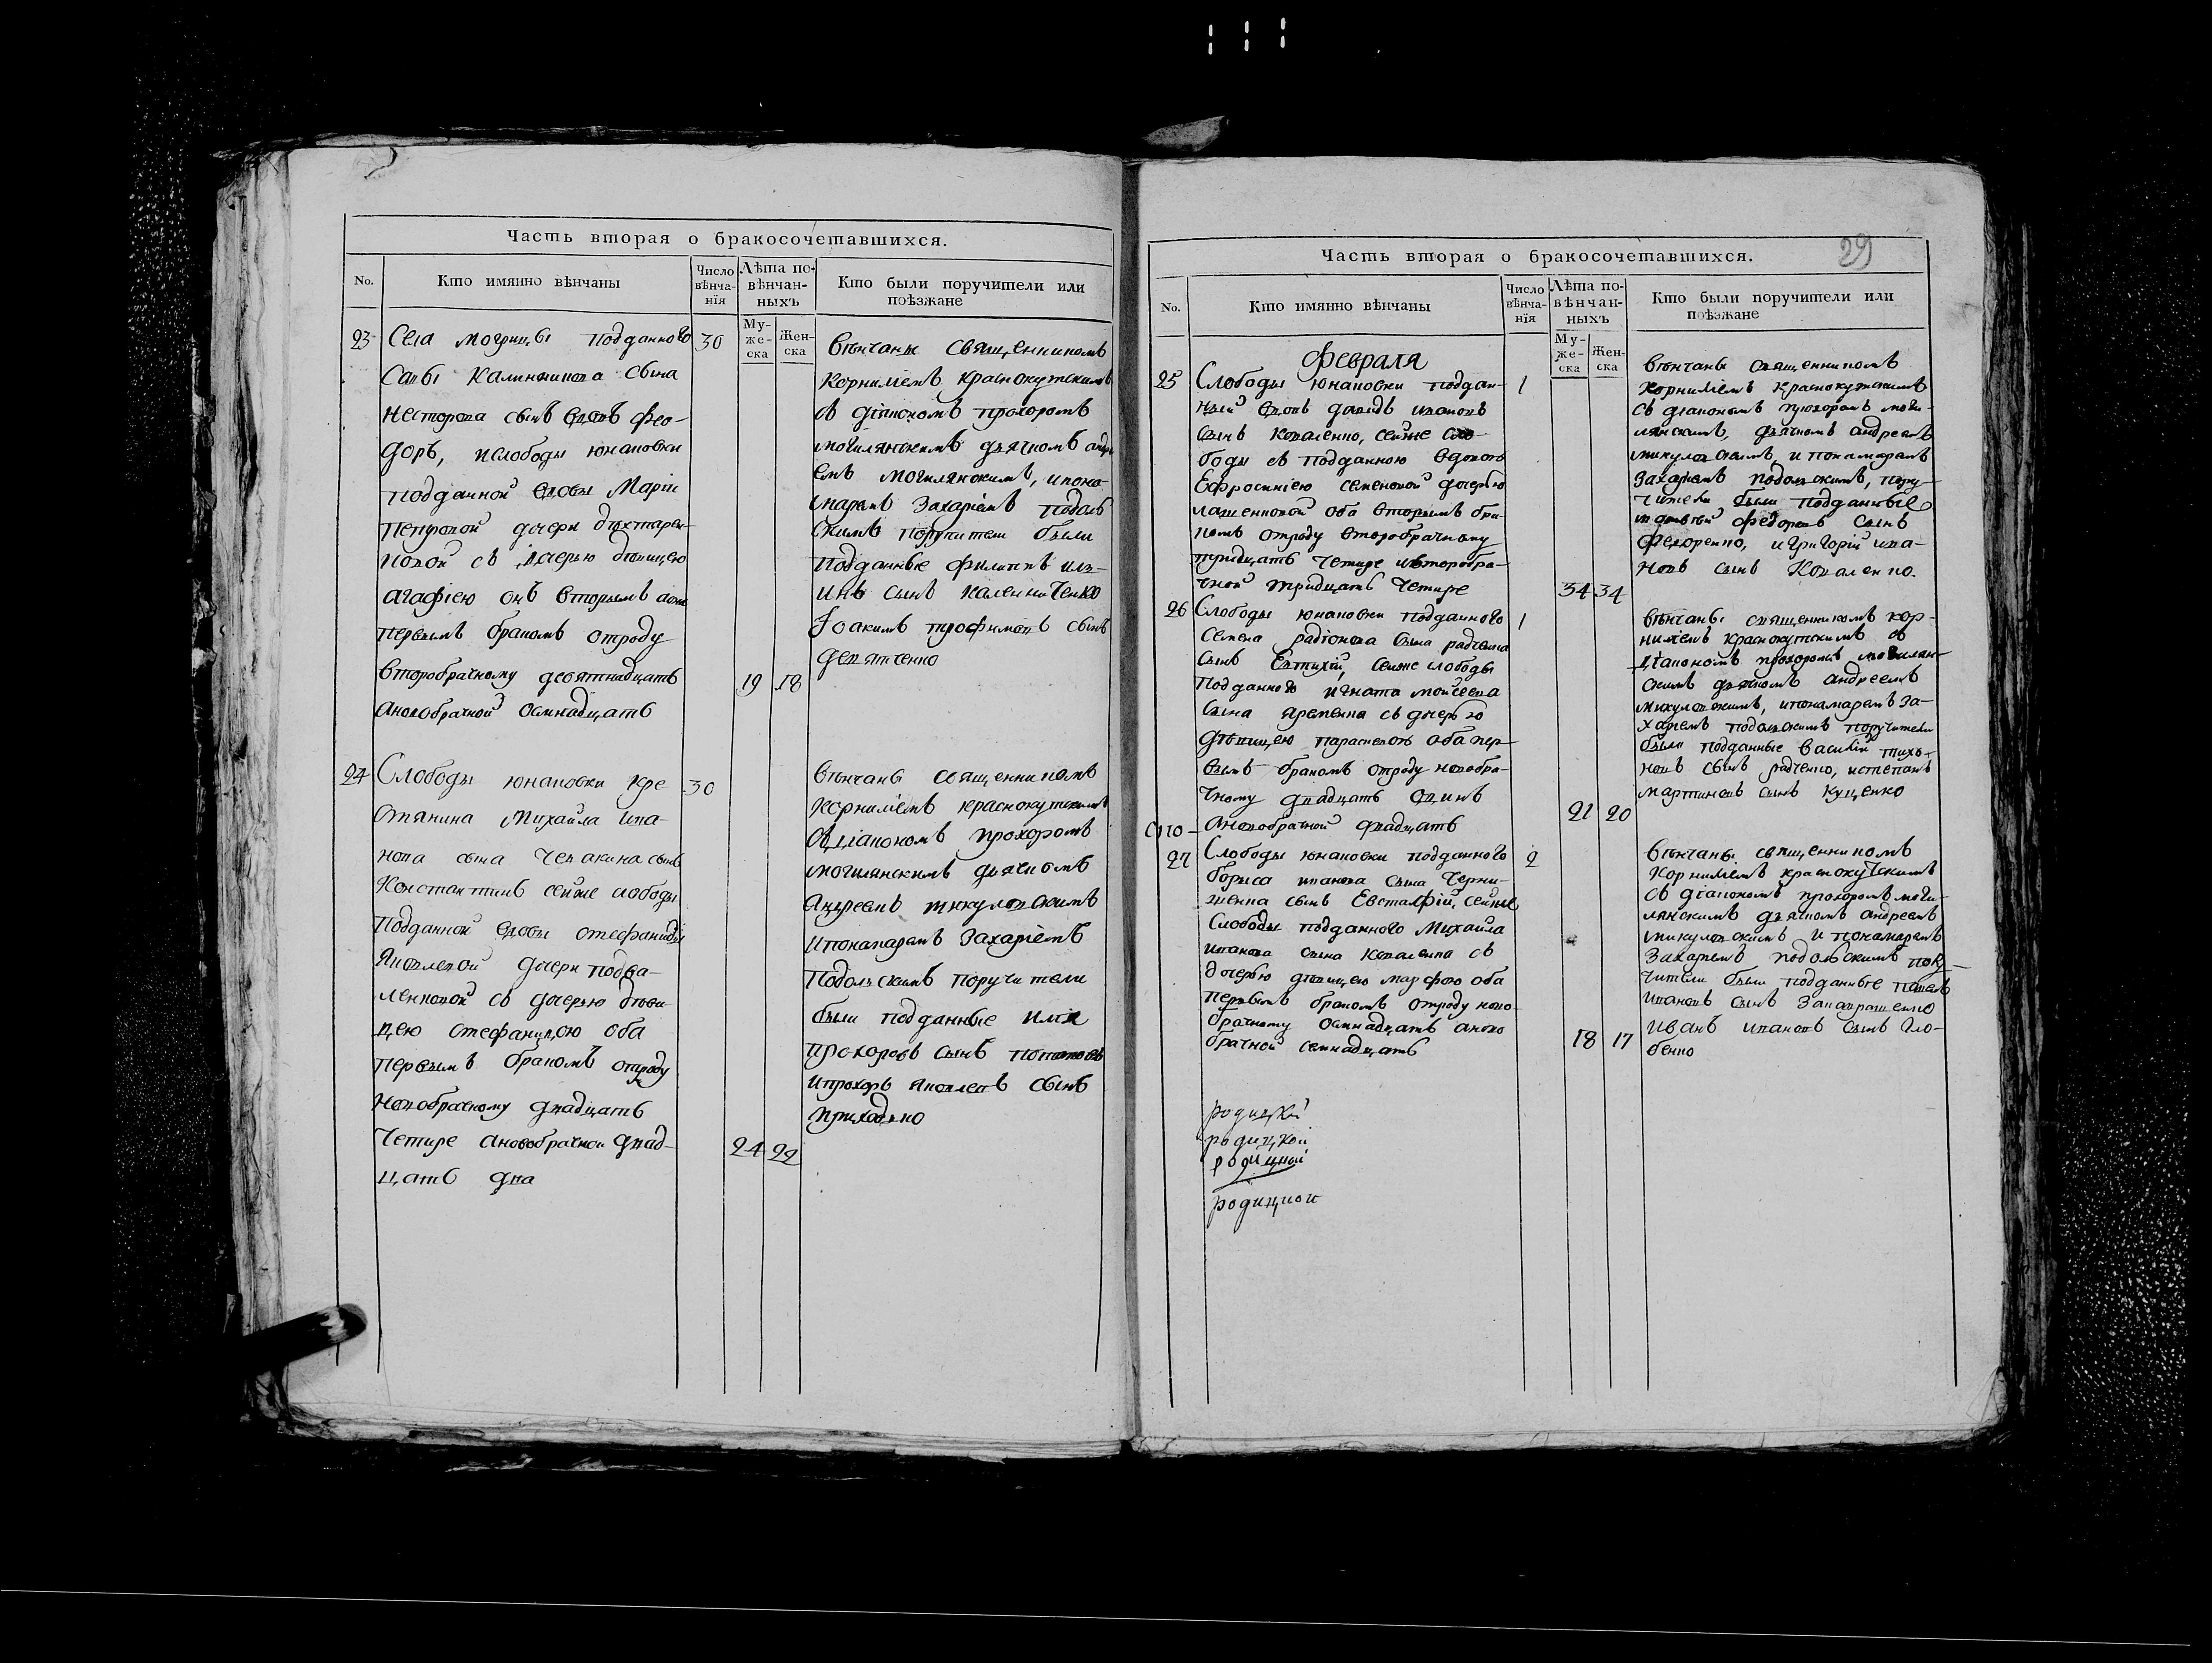 Часть вторая о бракосочетавшихся.
No.
Кто имянно вѣнчаны
Число вѣнча-нія
Лѣта по-вѣнчан-ныхъ
Му-же-ска
Жен-ска
Кто были поручители или поѣзжане
23
Села могрицы подданного
Савы Калинникова сына
Несторова сынъ вдовъ Фео-
доръ, ислободы юнаковки
подданной вдовы Маріи
Петровой дочери
новой съ дочерью дѣвицею
агафіею онъ вторымъ аона
первымъ бракомъ отроду
второбрачному девятнадцать
ановобрачной осмнадцать
30
19 18
вѣнчаны священникомъ
Корниліемъ краснокутскимъ
съ діакономъ прохоромъ
могилянскимъ дьячкомъ андре
емъ могилянскимъ, ипоно-
маремъ Захаріемъ подоль
скимъ поручители были
подданные филиппъ иль-
инъ сынъ калениченко
Іоакимъ трофимовъ сынъ
девятченко
24
Слободы юнаковки кре
стянина Михайла ива-
нова сына чепакина сынъ
Константинъ сейже слободы
Подданной вдовы стефаниды
Яковлевой дочери подва-
ленковой съ дочерью дѣви
цею стефанидою оба
первымъ бракомъ отроду
новобрачному двадцать
четире ановобрачной двад-
цать два
30
24 22
вѣнчаны священникомъ
корниліемъ краснокутскимъ
съ діакономъ прохоромъ
могилянскимъ дьячкомъ
андреемъ микуловскимъ
ипонамаремъ Захаріемъ
Подольскимъ поручители
были подданные илія
прохоровъ сынъ
ипрохоръ яковлевъ сынъ
приходко
29
Часть вторая о бракосочетавшихся.
No.
Кто имянно вѣнчаны
Число вѣнча-нія
Лѣта по-вѣнчан-ныхъ
Му-же-ска
Жен-ска
Кто были поручители или поѣзжане
Февраля
25
Слободы юнаковки поддан-
ный вдовъ давидъ ивановъ
сынъ коваленко, сейже сло-
боды съ подданною вдовою
Ефросиніею семеновой дочерью
лашенковой оба вторымъ бра-
комъ отроду второбрачному
тридцать четире ивторобра-
чной тридцать четире
1
34 34
вѣнчаны священникомъ
корниліемъ краснокутскимъ
съ діакономъ прохоромъ моги-
лянскимъ, дьячкомъ андреемъ
микуловскимъ, и понамаремъ
Захаріемъ подольскимъ, пору-
чители были подданные
матвѣй федоровъ сынъ
федоренко, игригорій ива-
новъ сынъ Коваленко.
26
Слободы юнаковки подданного
Семена радіонова сына радченка
сынъ Евтихій, сейже слободы
Подданного игната мойсеева
сына яременка съ дочерью
дѣвицею параскевою оба пер-
вымъ бракомъ отроду новобра-
чному двадцать одинъ
ановобрачной двадцать
1
21 20
вѣнчаны священникомъ кор-
ниліемъ краснокутскимъ съ
діакономъ прохоромъ могилян-
скимъ дьячкомъ андреемъ
микуловскимъ, ипонамаремъ За-
харіемъ подольскимъ поручители
были подданные василій тихо-
новъ сынъ радченко, истепанъ
мартиновъ сынъ куценко
27
Слободы юнаковки подданного
бориса иванова сына черни-
шенка сынъ Евстафій, сейже
Слободы подданного Михайла
иванова сына коваленка съ
дочерью дѣвицею марфою оба
первымъ бракомъ отроду ново-
брачному осмнадцать аново
брачной семнадцать
2
18 17
вѣнчаны священникомъ
Корниліемъ краснокутскимъ
съ діакономъ прохоромъ моги-
лянскимъ дьячкомъ андреемъ
микуловскимъ и понамаремъ
Захаріемъ подольскимъ пору-
чители были подданные павелъ
ивановъ сынъ
иванъ ивановъ сынъ гло-
бенко
родицкій
родицкой
родицкой
родицкои